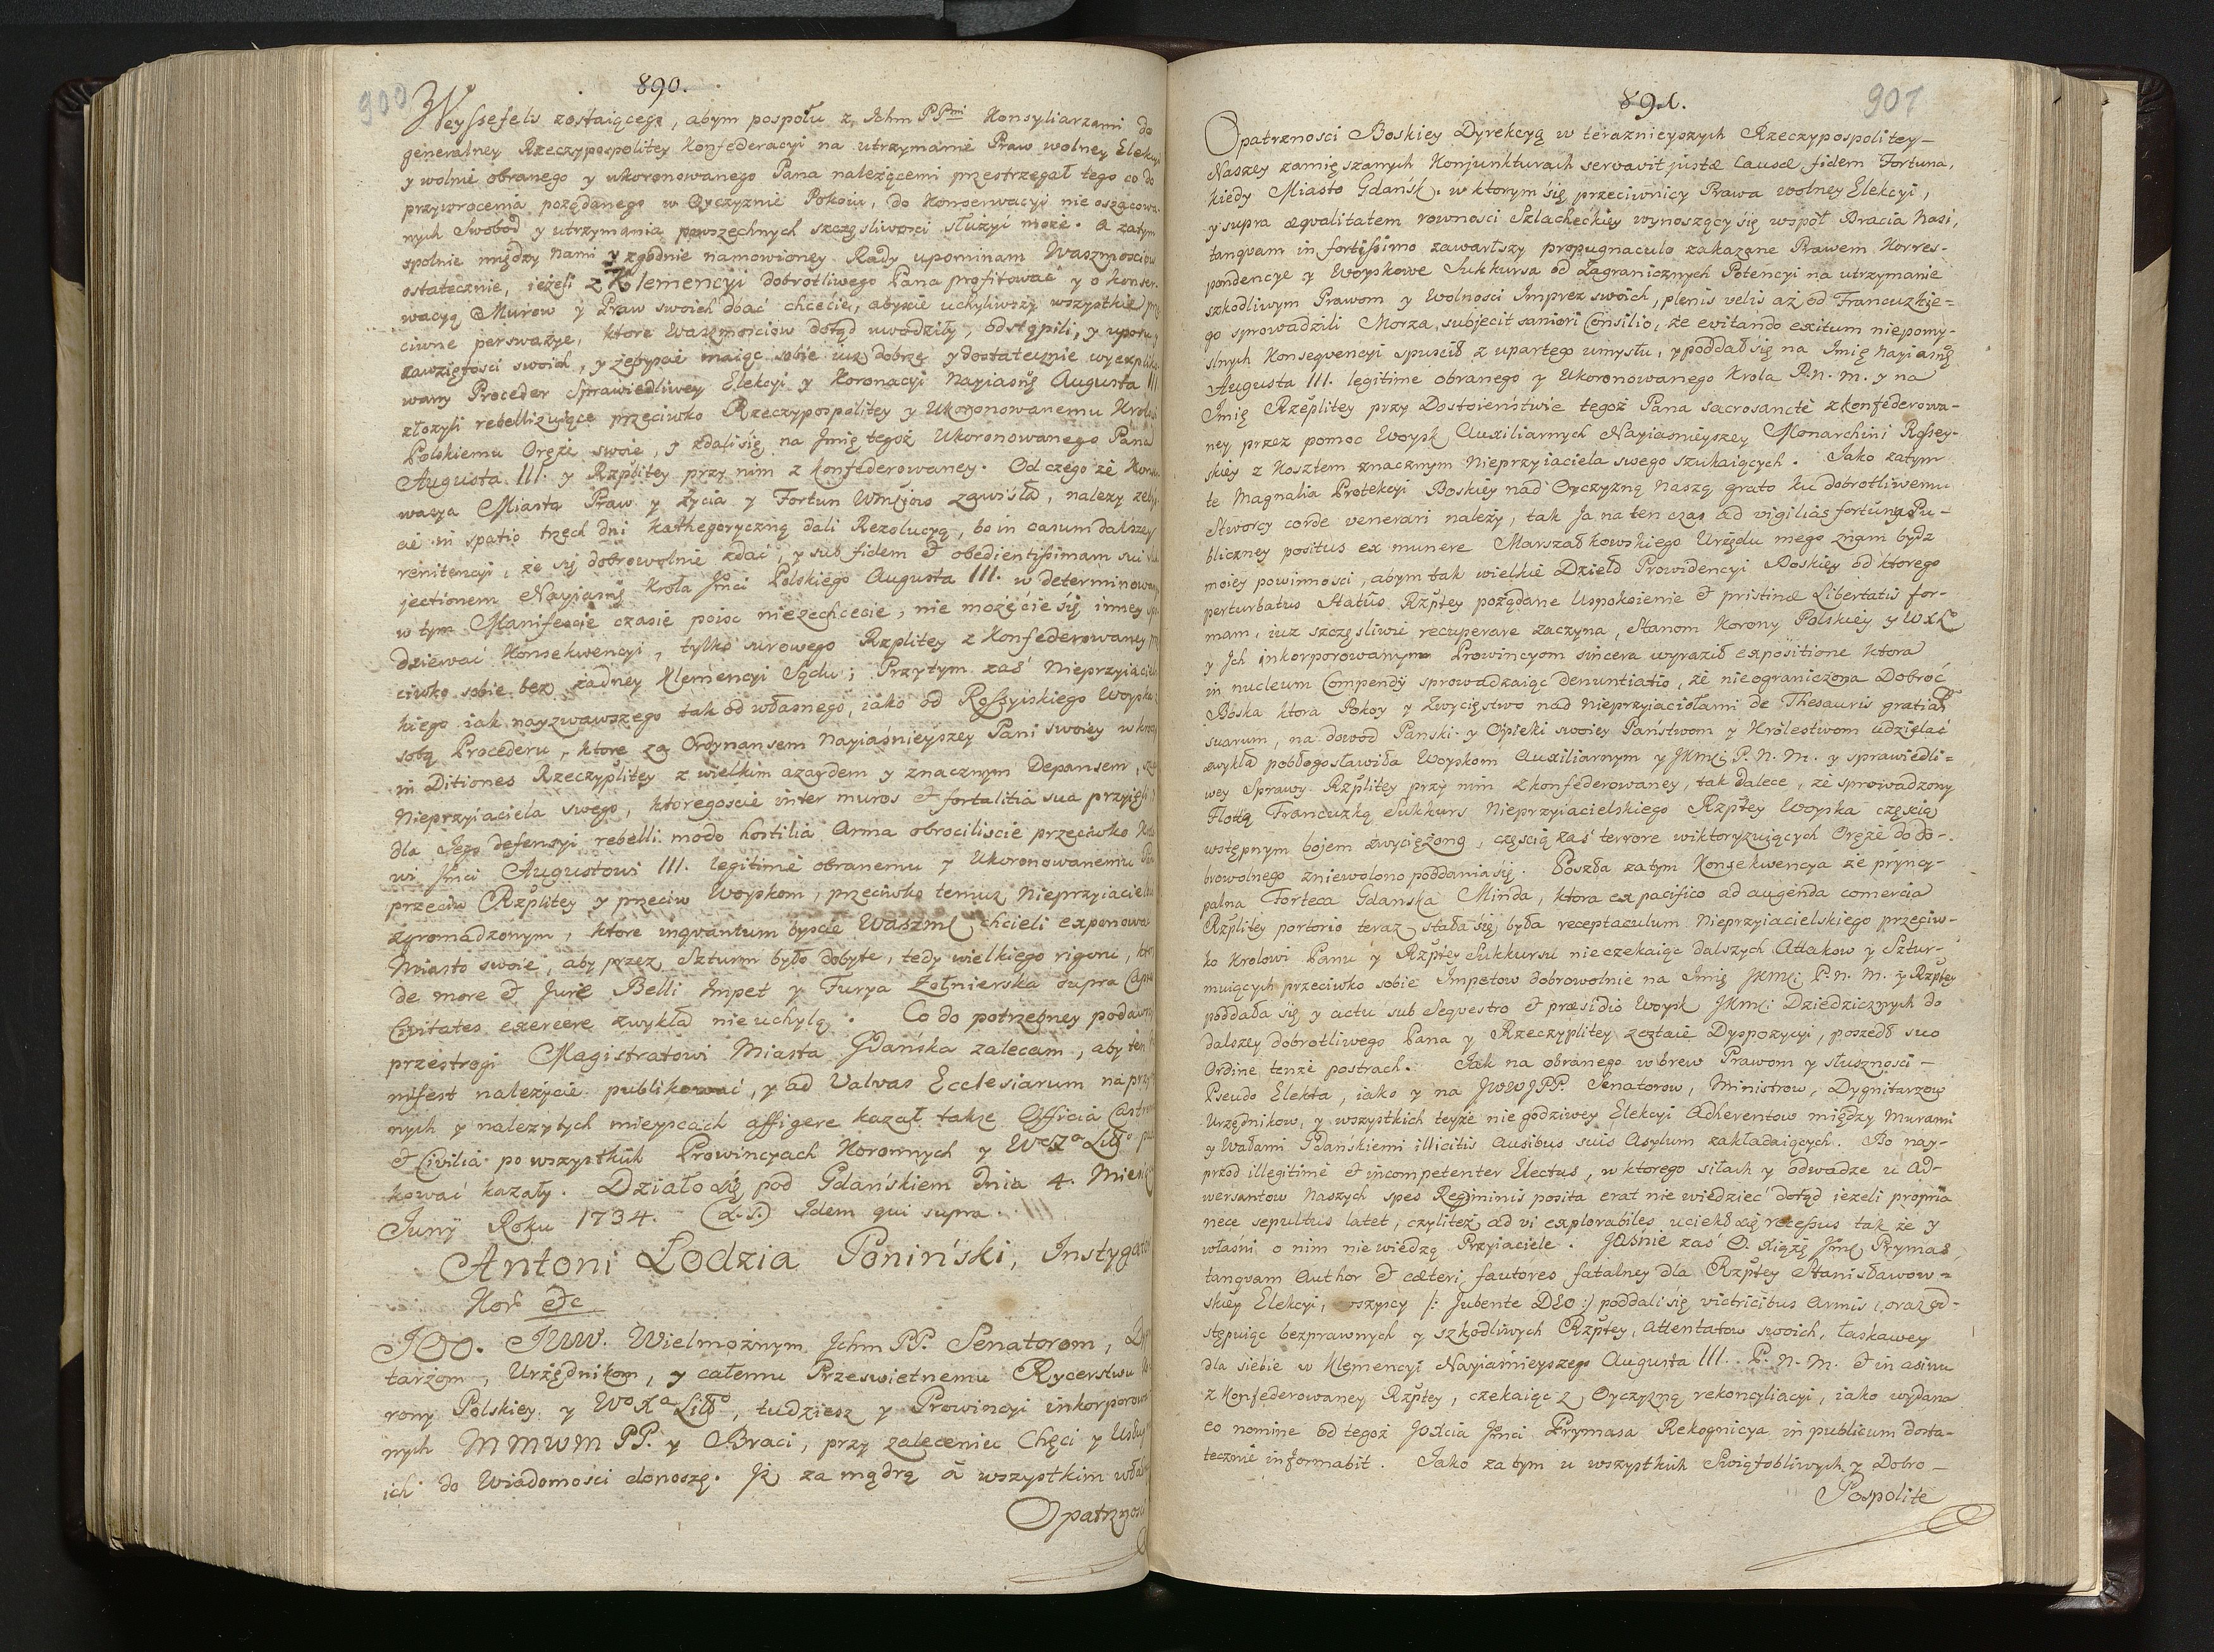 900
890.
Weyssefels zostaiącego, abym pospołu z Ichm PPmi Konsyliarzami do
generalney Rzeczypospolitey Konfederacyi na utrzymanie Praw wolney Elekcyi
y wolnie obranego y ukoronowanego Pana należącemi przestrzegał tego co do
przywrocenia pożądanego w Oyczyznie Pokoiu, do Konserwacyi nie oszacowa-
nych Swobod y utrzymania powszechnych szczęsliwosci służyć może. A zatym
spolnie między nami y zgodnie namowioney Rady upominam Waszmosciow
ostatecznie, ieżeli z Klemencyi dobrotliwego Pana profitować y o konser-
wacyą Murow y Praw swoich dbać chcecie, abyscie uchyliwszy wszystkie
ciwne perswazye, ktore Waszmosciow dotąd uwodziły, odstąpili, y uporu
zawziętosci swoich, y żebyscie maiąc sobie iuż dobrze y dostatecznie wyexpliko-
wany Proceder Sprawiedliwey Elekcyi y Koronacyi Nayiasng Augusta III.
złożyli rebellizuiące przeciwko Rzeczypospolitey y Ukoronowanemu Krolowi
Polskiemu Oręże swoie, y zdali się na Imię tegoż Ukoronowanego Pana
Augusta III. y Rzplitey przy nim z konfederowaney. Od czego że Konser-
wacya Miasta Praw y życia y Fortun Wmsciow zawisła, należy żeby-
cie in spatio trzech dni kathegoryczną dali Rezolucyą, bo in casum dalszey
renitencyi, że się dobrowolnie zdać, y sub fidem & obedientissimam sui
jectionem Nayiasng Krola Jmci Polskiego Augusta III. w determinowanym
w tym Manifescie czasie poisc niezechcecie, nie możecie się inney
dziewać Konsekwencyi, tylko surowego Rzplitey z Konfederowaney
ciwko sobie bez żadney Klemencyi Sądu; Przytym zaś Nieprzyiaciel-
kiego iak nayzwawszego tak od własnego, iako od Rossyiskiego Woyska
sobą Procederu, ktore za Ordynansem Nayiasnieyszey Pani swoiey
in Ditiones Rzeczyplitey z wielkim azardem y znacznym Depansem,
Nieprzyiaciela swego, ktoregoscie inter muros & fortalitia sua przyięli
dla Jego defensyi rebelli modo hostilia Arma obrociliscie przeciwko
wi Jmci Augustowi III. legitime obranemu y Ukoronowanemu
przeciw Rzplitey y przeciw Woyskom, przeciwko temuż Nieprzyiacielowi
zgromadzonym, ktore inqvantum byscie Waszms chcieli exponować
Miasto swoie, aby przez Szturm było dobyte, tedy wielkiego rigoru,
de more & Jure Belli Impet y Furya Żołnierska supra
Civitates exercere zwykła nie uchylą. Co do potrzebney podaney
przestrogi Magistratowi Miasta Gdańska zalecam, aby ten
nifest należycie publikować, y ad Valvas Ecclesiarum na
nych y należytych mieyscach affigere kazał także Officia Castren
& Civilia po wszystkich Prowincyach Koronnych y WoXo Litto
kować kazały. Działo się pod Gdańskiem Dnia 4. Miesią
Junij Roku 1734. (L.S.) Idem qui supra.
Antoni Łodzia Poniński, Instygator
Kor etc
JOO. JWW. Wielmożnym Ichm PP. Senatorom,
tarzom, Urzędnikom, y całemu Przeswietnemu Rycerstwu
rony Polskiey y WoXa Litto, tudziesz y Prowincyi inkorporowa-
nych MMWM PP. y Braci, przy zaleceniu Chęci y Usług
ich do Wiadomosci donoszę. Iż za mądrą a wszystkim
Opatrznosc
901
891.
Opatrznosci Boskiey Dyrekcyą w teraznieyszych Rzeczypospolitey-
Naszey zamięszanych Konjunkturach servavit justæ Causæ fidem Fortuna,
kiedy Miasto Gdańsk, w ktorym się przeciwnicy Prawa wolney Elekcyi,
y supra æqvalitatem rownosci Szlacheckiey wynoszący się wspoł Bracia Nasi,
tanqvam in fortissimo zawarłszy propugnaculo zakazane Prawem Korres-
pondencye y Woyskowe Sukkursa od Zagranicznych Potencyi na utrzymanie
szkodliwym Prawom y Wolnosci Imprez swoich, plenis velis aż od Francuzkie=
go sprowadzili Morza, subjecit saniori Consilio, że evitando exitum niepomy-
slnych Konseqvencyi spuscił z upartego umysłu, y poddał się na Imię Nayiasng
Augusta III. legitime obranego y Ukoronowanego Krola P. n. m. y na
Imię Rzeplitey przy Dostoieństwie tegoż Pana sacrosancte z konfederowa-
ney przez pomoc Woysk Auxiliarnych Nayiasnieyszey Monarchini Rossey-
skiey z Kosztem znacznym Nieprzyiaciela swego szukaiących. Jako zatym
te Magnalia Protekcyi Boskiey nad Oyczyzną naszą grato ku dobrotliwemu
Stworcy corde venerari należy, tak Ja na ten czas ad vigilias fortunæ Pu-
bliczney positus ex munere Marszałkowskiego Urzędu mego znam bydz
moiey powinnosci, abym tak wielkie Dzieło Prowidencyi Boskiey od ktorego
perturbatus Status Rzptey pożądane Uspokoienie & pristinæ Libertatis for-
mam, iuz szczęsliwie recuperare zaczyna, Stanom Korony Polskiey y WXL
y Ich inkorporowanym Prowincyom sincera wyraził expositione ktora
in nucleum Compendij sprowadzaiąc denuntiatio, że nieograniczona Dobroć
Boska ktora Pokoy y Zwycięstwo nad Nieprzyiaciołami de Thesauris gratiar
suarum, na dowod Panski y Opieki swoiey Państwom y Królestwom udzielać
zwykła pobłogosławiła Woyskom Auxiliarnym y JKMci P. N. M. y sprawiedli=
wey Sprawy Rzplitey przy nim z konfederowaney, tak dalece, że sprowadzony
Flottą Francuzką Sukkurs Nieprzyiacielskiego Rzptey Woyska częscią
wstępnym bojem zwyciężono, częscią zaś terrore wiktoryzuiących Oręże do do-
browolnego zniewolono poddania się. Poszła zatym Konsekwencya że pryncy-
palna Forteca Gdanska Minda, ktora ex pacifico ad augenda comercia
Rzplitey portorio teraz stała się była receptaculum Nieprzyiacielskiego przeciw-
ko Krolowi Panu y Rzptey Sukkursu nieczekaiąc dalszych Attakow y Sztur-
muiących przeciwko sobie Impetow dobrowolnie na Imię JKMci P. n. M. y Rzptey
poddała się y actu sub Seqvestro & præsidio Woysk JKmci Dziedzicznych do
dalszey dobrotliwego Pana y Rzeczyplitey zostaie Dyspozycyi, poszedł suo
Ordine tenże postrach. Jak na obranego wbrew Prawom y słusznosci-
Pseudo Elekta, iako y na JWWJPP. Senatorow, Ministrow, Dygnitarzow
Urzędnikow, y wszystkich teyże niegodziwey Elekcyi Adherentow między Murami
y Wałami Gdańskiemi illicitis Ausibus suis Asylum zakładaiących. Bo nay-
przod illegitime & incompetenter Electus, w ktorego siłach y odwadze u Ad-
wersantow Naszych spes Regiminis posita erat nie wiedzieć dotąd ieżeli propria
nece sepultus latet, czyliteż ad vi explorabiles uciekł się recessus tak że y
własni o nim niewiedzą Przyiaciele. JASnie zaś O. Xiążę Jmc Prymas,
tanqvam Author & cæteri fautores fatalney dla Rzptey Stanisławow=
skiey Elekcyi, wszyscy /: Jubente DEO :/ poddali się victricibus Armis, oraz od-
stępuiąc bezprawnych y szkodliwych Rzptey, Attentatow swoich, łaskawey
dla siebie w Klemencyi Nayiasnieyszego Augusta III. P. N. M. & in asinu
z Konfederowaney Rzptey, czekaiąc z Oyczyzną rekoncyliacyi, iako wydana
eo nomine od tegoż JoXcia Jmci Prymasa Rekognicya in publicum dosta-
tecznie informabit. Jako za tym u wszystkich Swiątobliwych y Dobro-
Pospolite